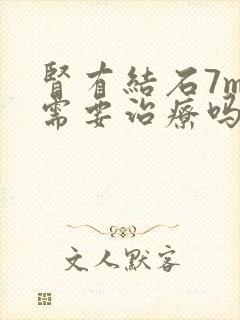 腎有結石7m
需要治療吗
文人默客